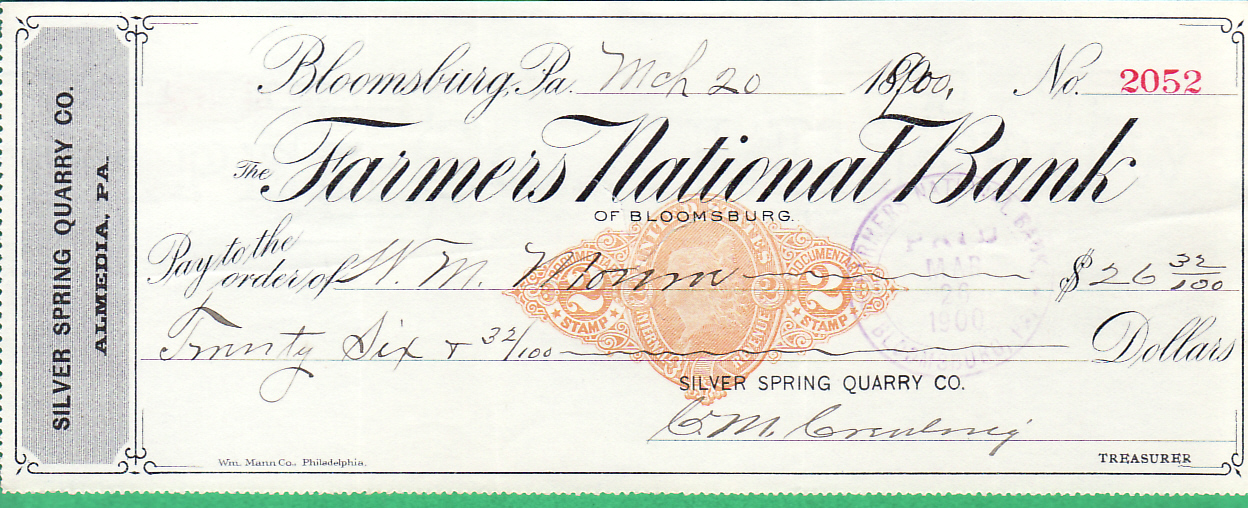 SILVER SPRING QUARRY CO.
ALMEDIA, PA.
Bloomsburg, Pa. Mch 20 1900, No. 2052
The Farmers National Bank
OF BLOOMSBURG.
Pay to the order of W. M. $26 32/100
Twenty Six + 32/100 Dollars
UNITED STATES
INTERNAL REVENUE
DOCUMENTARY
2
STAMP
2
2
DOCUMENTARY
2
STAMP
FARMERS NATIONAL BANK
PAID
MAR
26
1900
BLOOMSBURG,
SILVER SPRING QUARRY CO.
C. M.
TREASURER
Wm. Mann Co., Philadelphia.